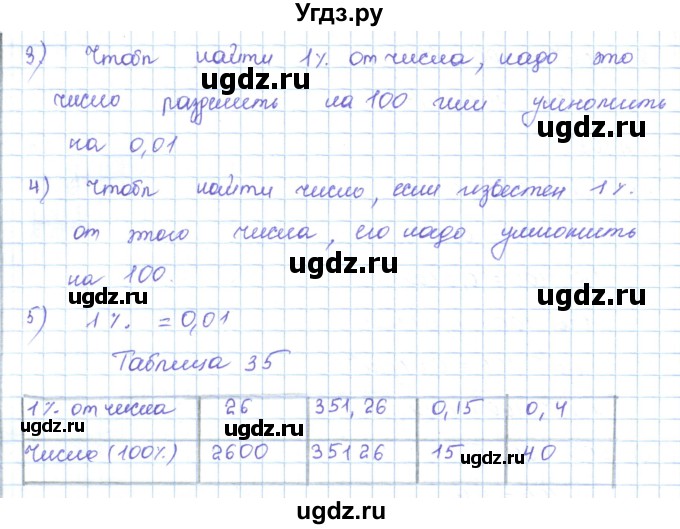 Угдз.ру
3) Чтобы найти 1% от числа, надо это
число разделить на 100 или умножить
на 0,01
4) Чтобы найти число, если известен 1%
от этого числа, его надо умножить
на 100.
5) 1% = 0,01
Таблица 35
1% от числа 26 351,26 0,15 0,4
Число (100%) 2600 35126 15 40
ugdz.ru
ugdz.ru
ugdz.ru
ugdz.ru
ugdz.ru
ugdz.ru
ugdz.ru
ugdz.ru
ugdz.ru
ugdz.ru